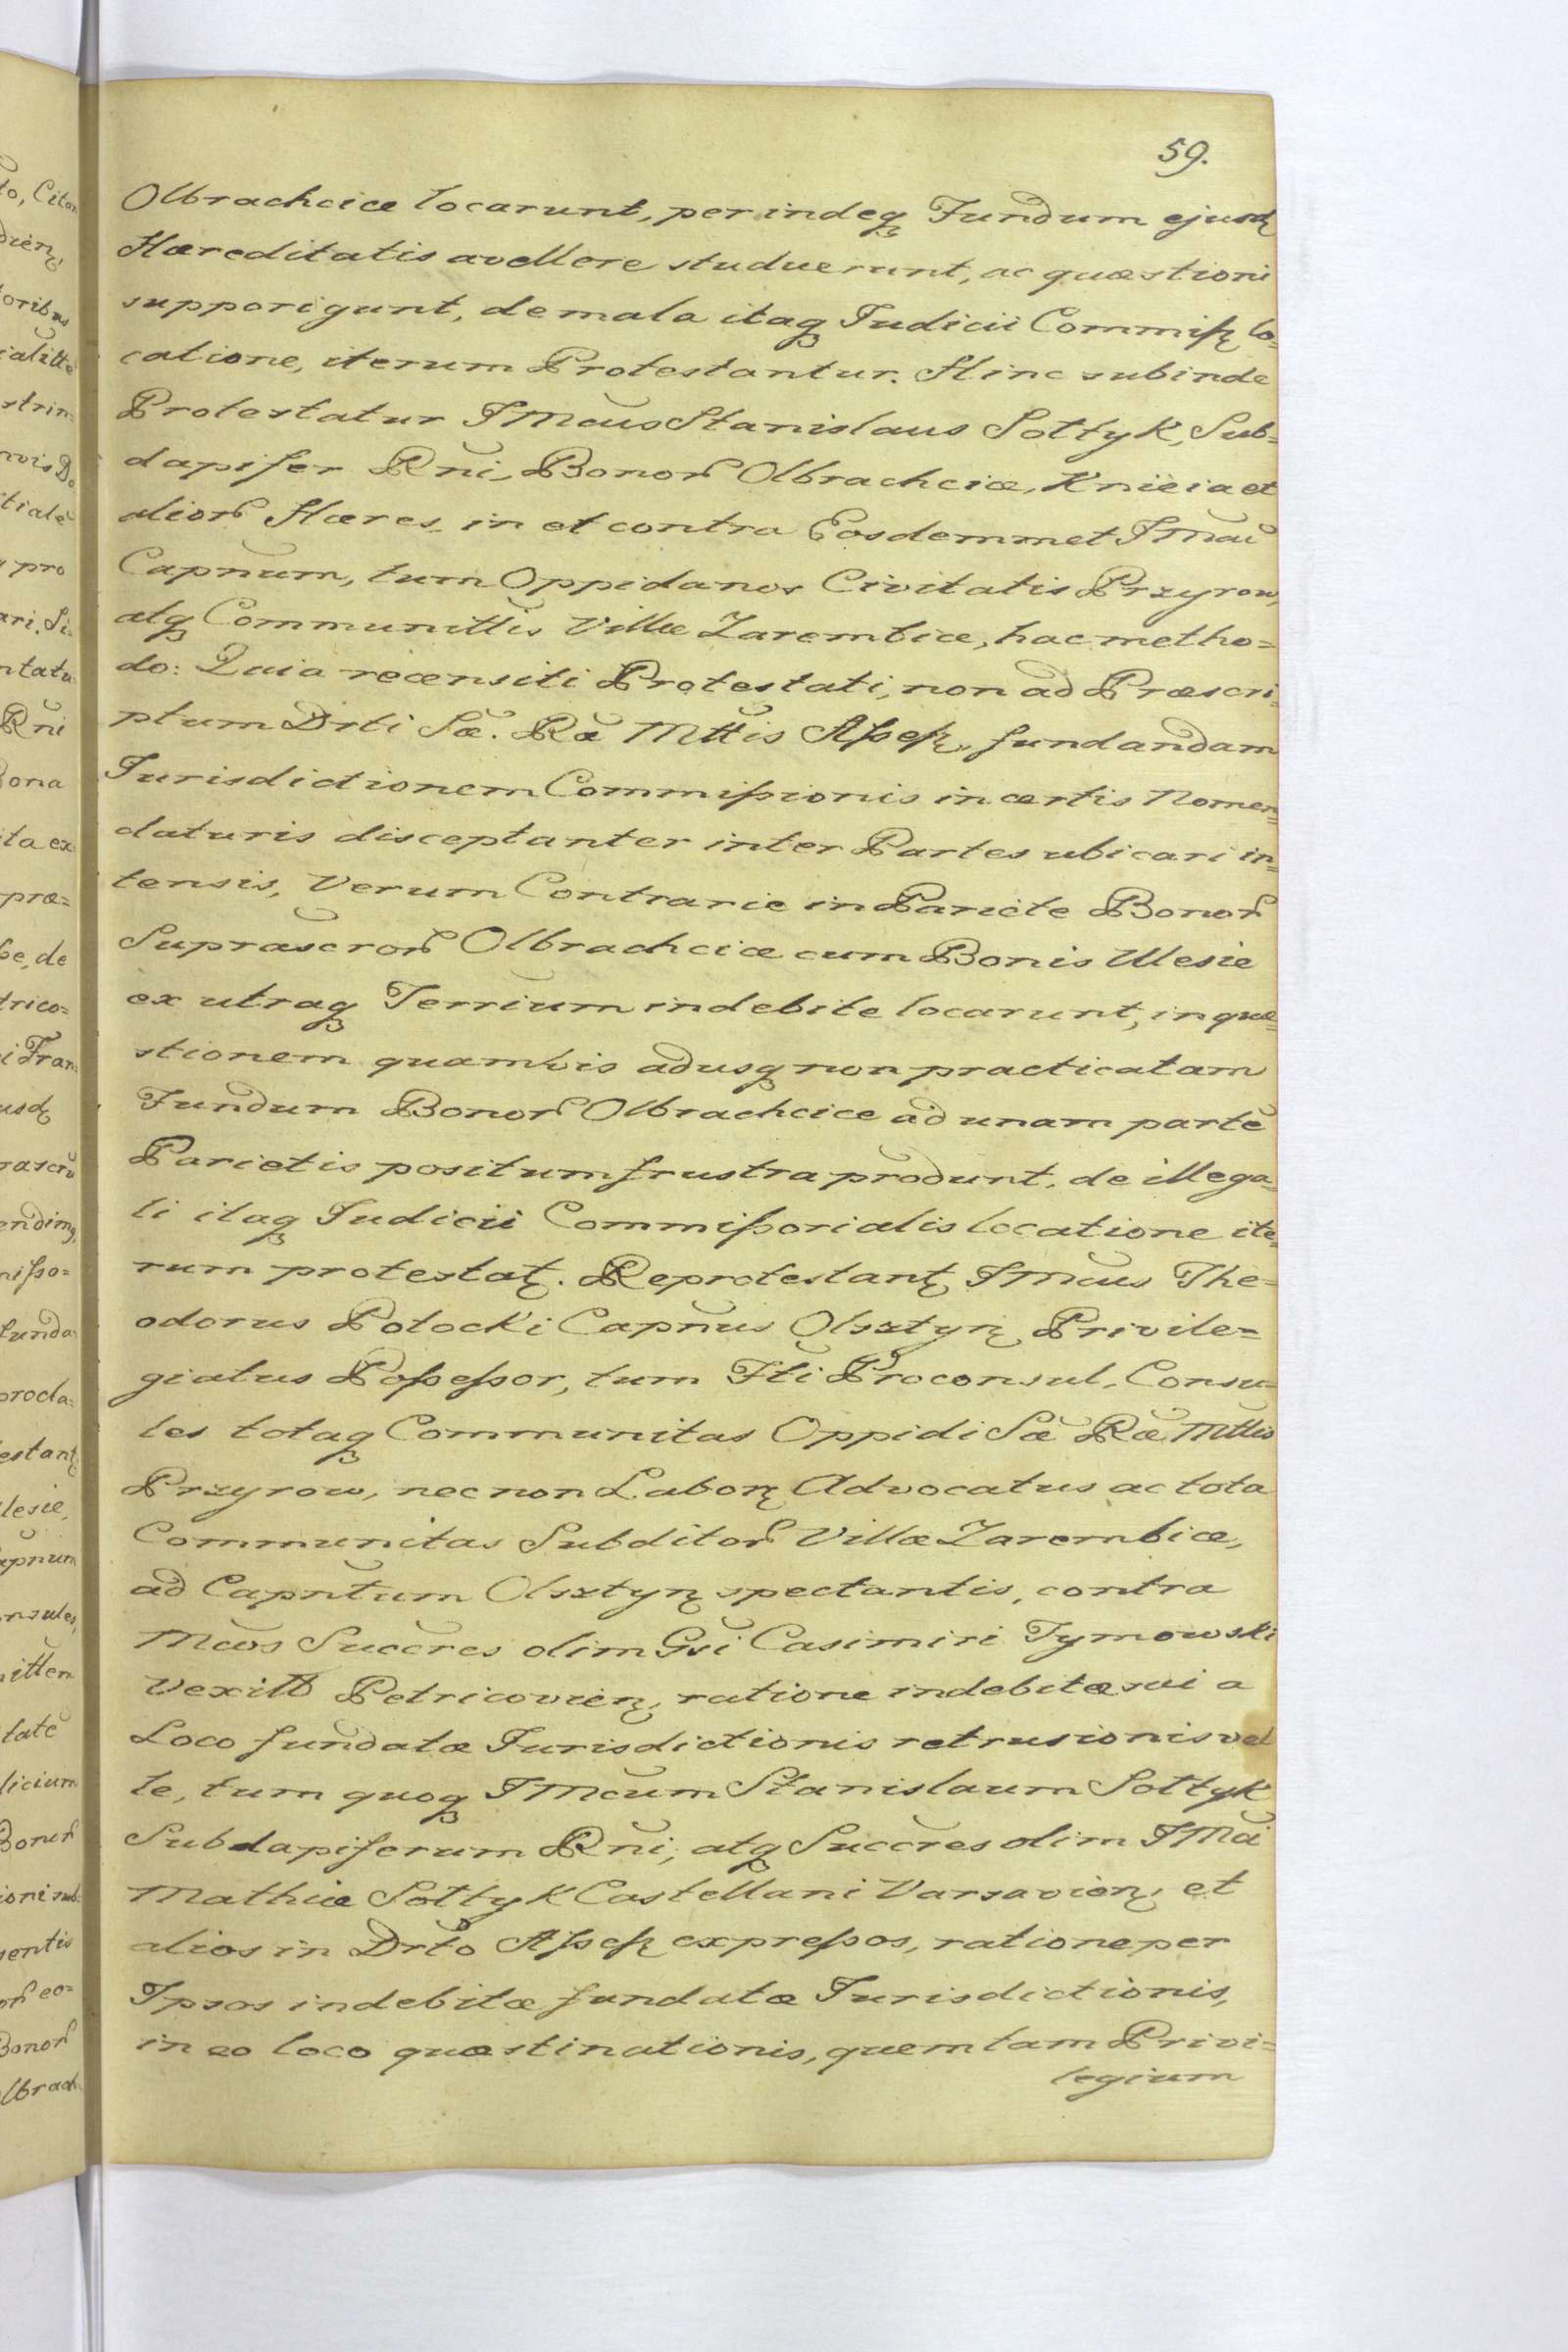 59.
Olbrachcice locarunt, perindeq Fundum ejusd
Hæreditatis avellere studuerunt, ac quæstioni
supporigunt, de mala itaq Judicii Commiss lo=
catione, iterum Protestantur. Hinc subinde
Protestatur J Mcus Stanislaus Sołtyk, Sub=
dapifer Rni, Bonor Olbrachcice, Knieia et
alior Hæres, in et contra Eosdemmet J Mai
Capnum, tum Oppidanos Civitatis Przyrow,
atq Communittis Villæ Zarembice, hac metho=
do: Quia recensiti Protestati, non ad Præscri=
ptum Drti Sæ. Ræ Mttis Assess, fundandam
Jurisdictionem Commissionis in certis Nomen=
daturis disceptanter inter Partes ubicari in=
tensis, Verum Contrarie in Pariete Bonor
Suprascror Olbrachcice cum Bonis Ulesie
ex utraq Terrium indebite locarunt, in quæ=
stionem quamvis adusq non practicatam
Fundum Bonor Olbrachcice ad unam partē
Parietis positum frustra produnt, de illega=
li itaq Judicii Commissorialis locatione ite=
rum protestat. Reprotestant J Mcus The=
odorus Potocki Capnus Olsztyn Privile=
giatus Possessor, tum Ftti Proconsul, Consu=
les totaq Communitas Oppidi Sæ Ræ Mttis
Przyrow, nec non Labor Advocatus ac tota
Communitas Subditor Villæ Zarembice,
ad Capntum Olsztyn spectantis, contra
Mcos Succres olim Gsi Casimiri Tymowski
Vexilli Petricovien, ratione indebitæ sui a
Loco fundatæ Jurisdictionis retrusionis vel
le, tum quoq J Mcum Stanislaum Sołtyk
Subdapiferum Rni, atq Succres olim J Mci
Mathiæ Sołtyk Castellani Varsavien, et
alios in Drto Assess expressos, ratione per
Ipsos indebitæ fundatæ Jurisdictionis,
in eo loco quæstinationis, quem tam Privi=
legium